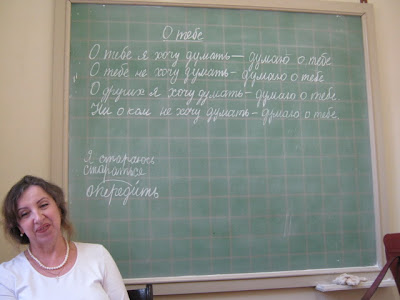 О тебе
О тебе я хочу думать — думаю о тебе.
О тебе не хочу думать - думаю о тебе.
О других я хочу думать - думаю о тебе.
Ни о ком не хочу думать - думаю о тебе.
Я стараюсь
стараться
опередить